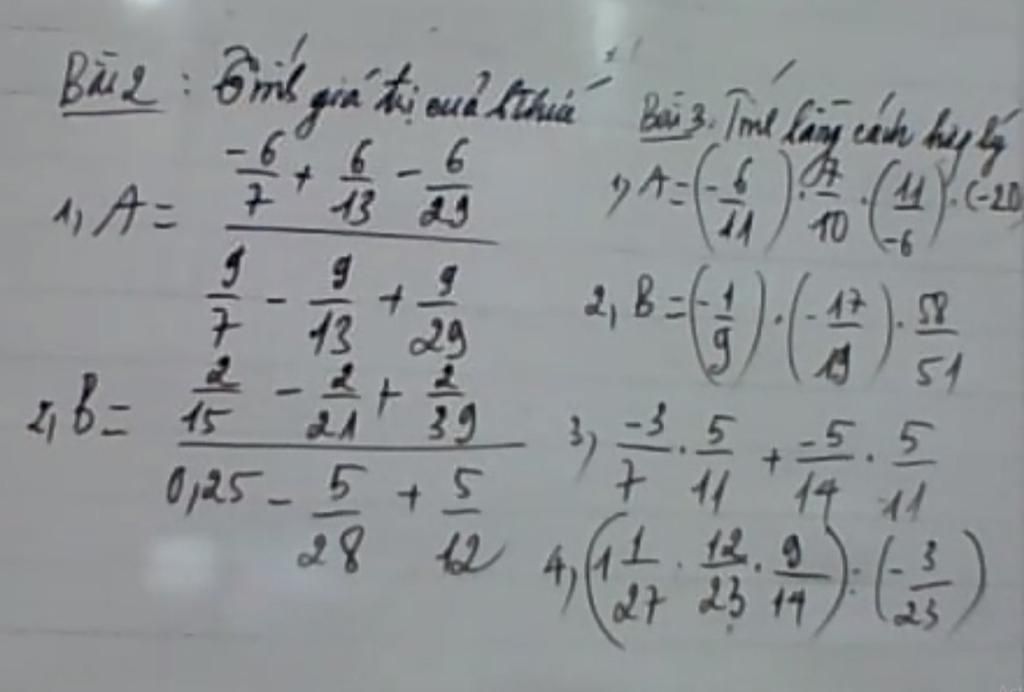 Bài 2 : Tính giá trị của bthức
1, A = (-6/7 + 6/13 - 6/29) / (9/7 - 9/13 + 9/29)
2, B = (2/15 - 2/21 + 2/39) / (0,25 - 5/28 + 5/12)
Bài 3. Tính bằng cách hợp lý
1, A = (-6/11) . 7/10 . (11/-6) . (-20)
2, B = (-1/9) . (-17/19) . 58/51
3, -3/7 . 5/11 + -5/14 . 5/11
4, (1 1/27 . 12/23 . 9/14) : (-3/23)